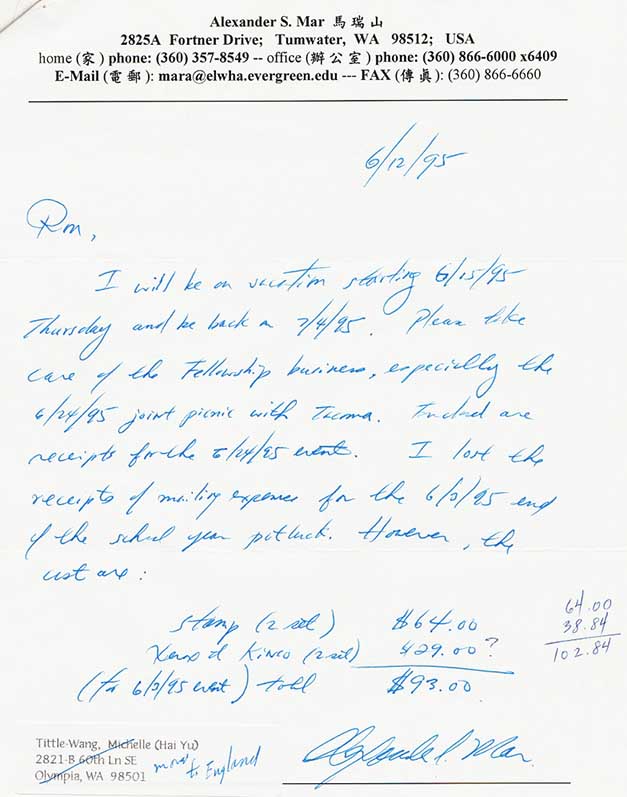 Alexander S. Mar 馬 瑞 山
2825A Fortner Drive; Tumwater, WA 98512; USA
home (家) phone: (360) 357-8549 -- office (辦 公 室) phone: (360) 866-6000 x6409
E-Mail (電 郵): mara@elwha.evergreen.edu --- FAX (傳 眞): (360) 866-6660
6/12/95
Ron,
I will be on vacation starting 6/15/95
Thursday and be back on 7/4/95. Please take
care of the Fellowship business, especially the
6/24/95 joint picnic with Tacoma. Included are
receipts for the 6/24/95 event. I lost the
receipts of mailing expenses for the 6/3/95 end
of the school year potluck. However, the
cost are:
Stamp (2 set) $64.00
Xerox at Kinco (2 set) $29.00 ?
(for 6/3/95 event) total $93.00
64.00
38.84
102.84
Tittle-Wang, Michelle (Hai Yu)
2821-B 60th Ln SE
Olympia, WA 98501
moved to England
Alexander S. Mar